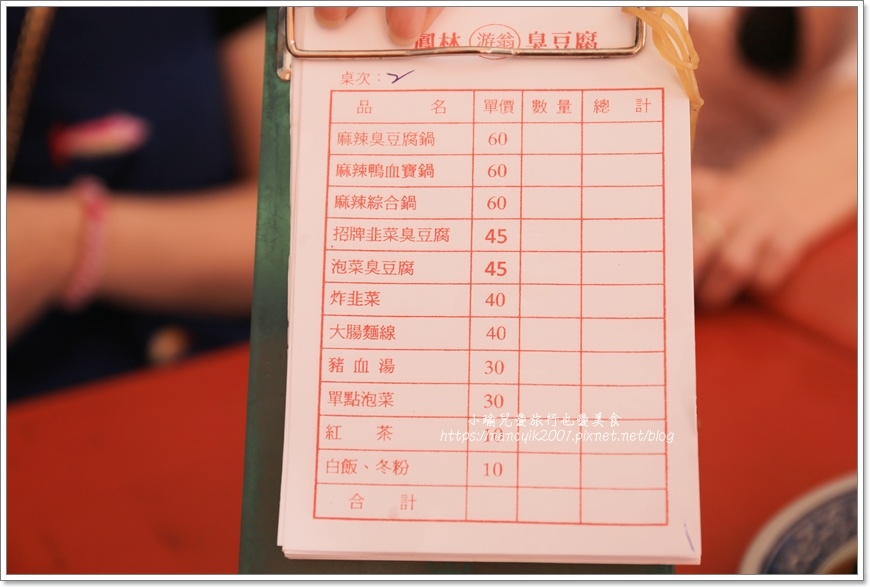 鳳林 游翁 臭豆腐
桌次：2
品 名 單價 數量 總 計
麻辣臭豆腐鍋 60
麻辣鴨血寶鍋 60
麻辣綜合鍋 60
招牌韭菜臭豆腐 45
泡菜臭豆腐 45
炸韭菜 40
大腸麵線 40
豬血湯 30
單點泡菜 30
紅 茶 10
白飯、冬粉 10
合 計
小瑜兒愛旅行也愛美食
https://nancylk2007.pixnet.net/blog